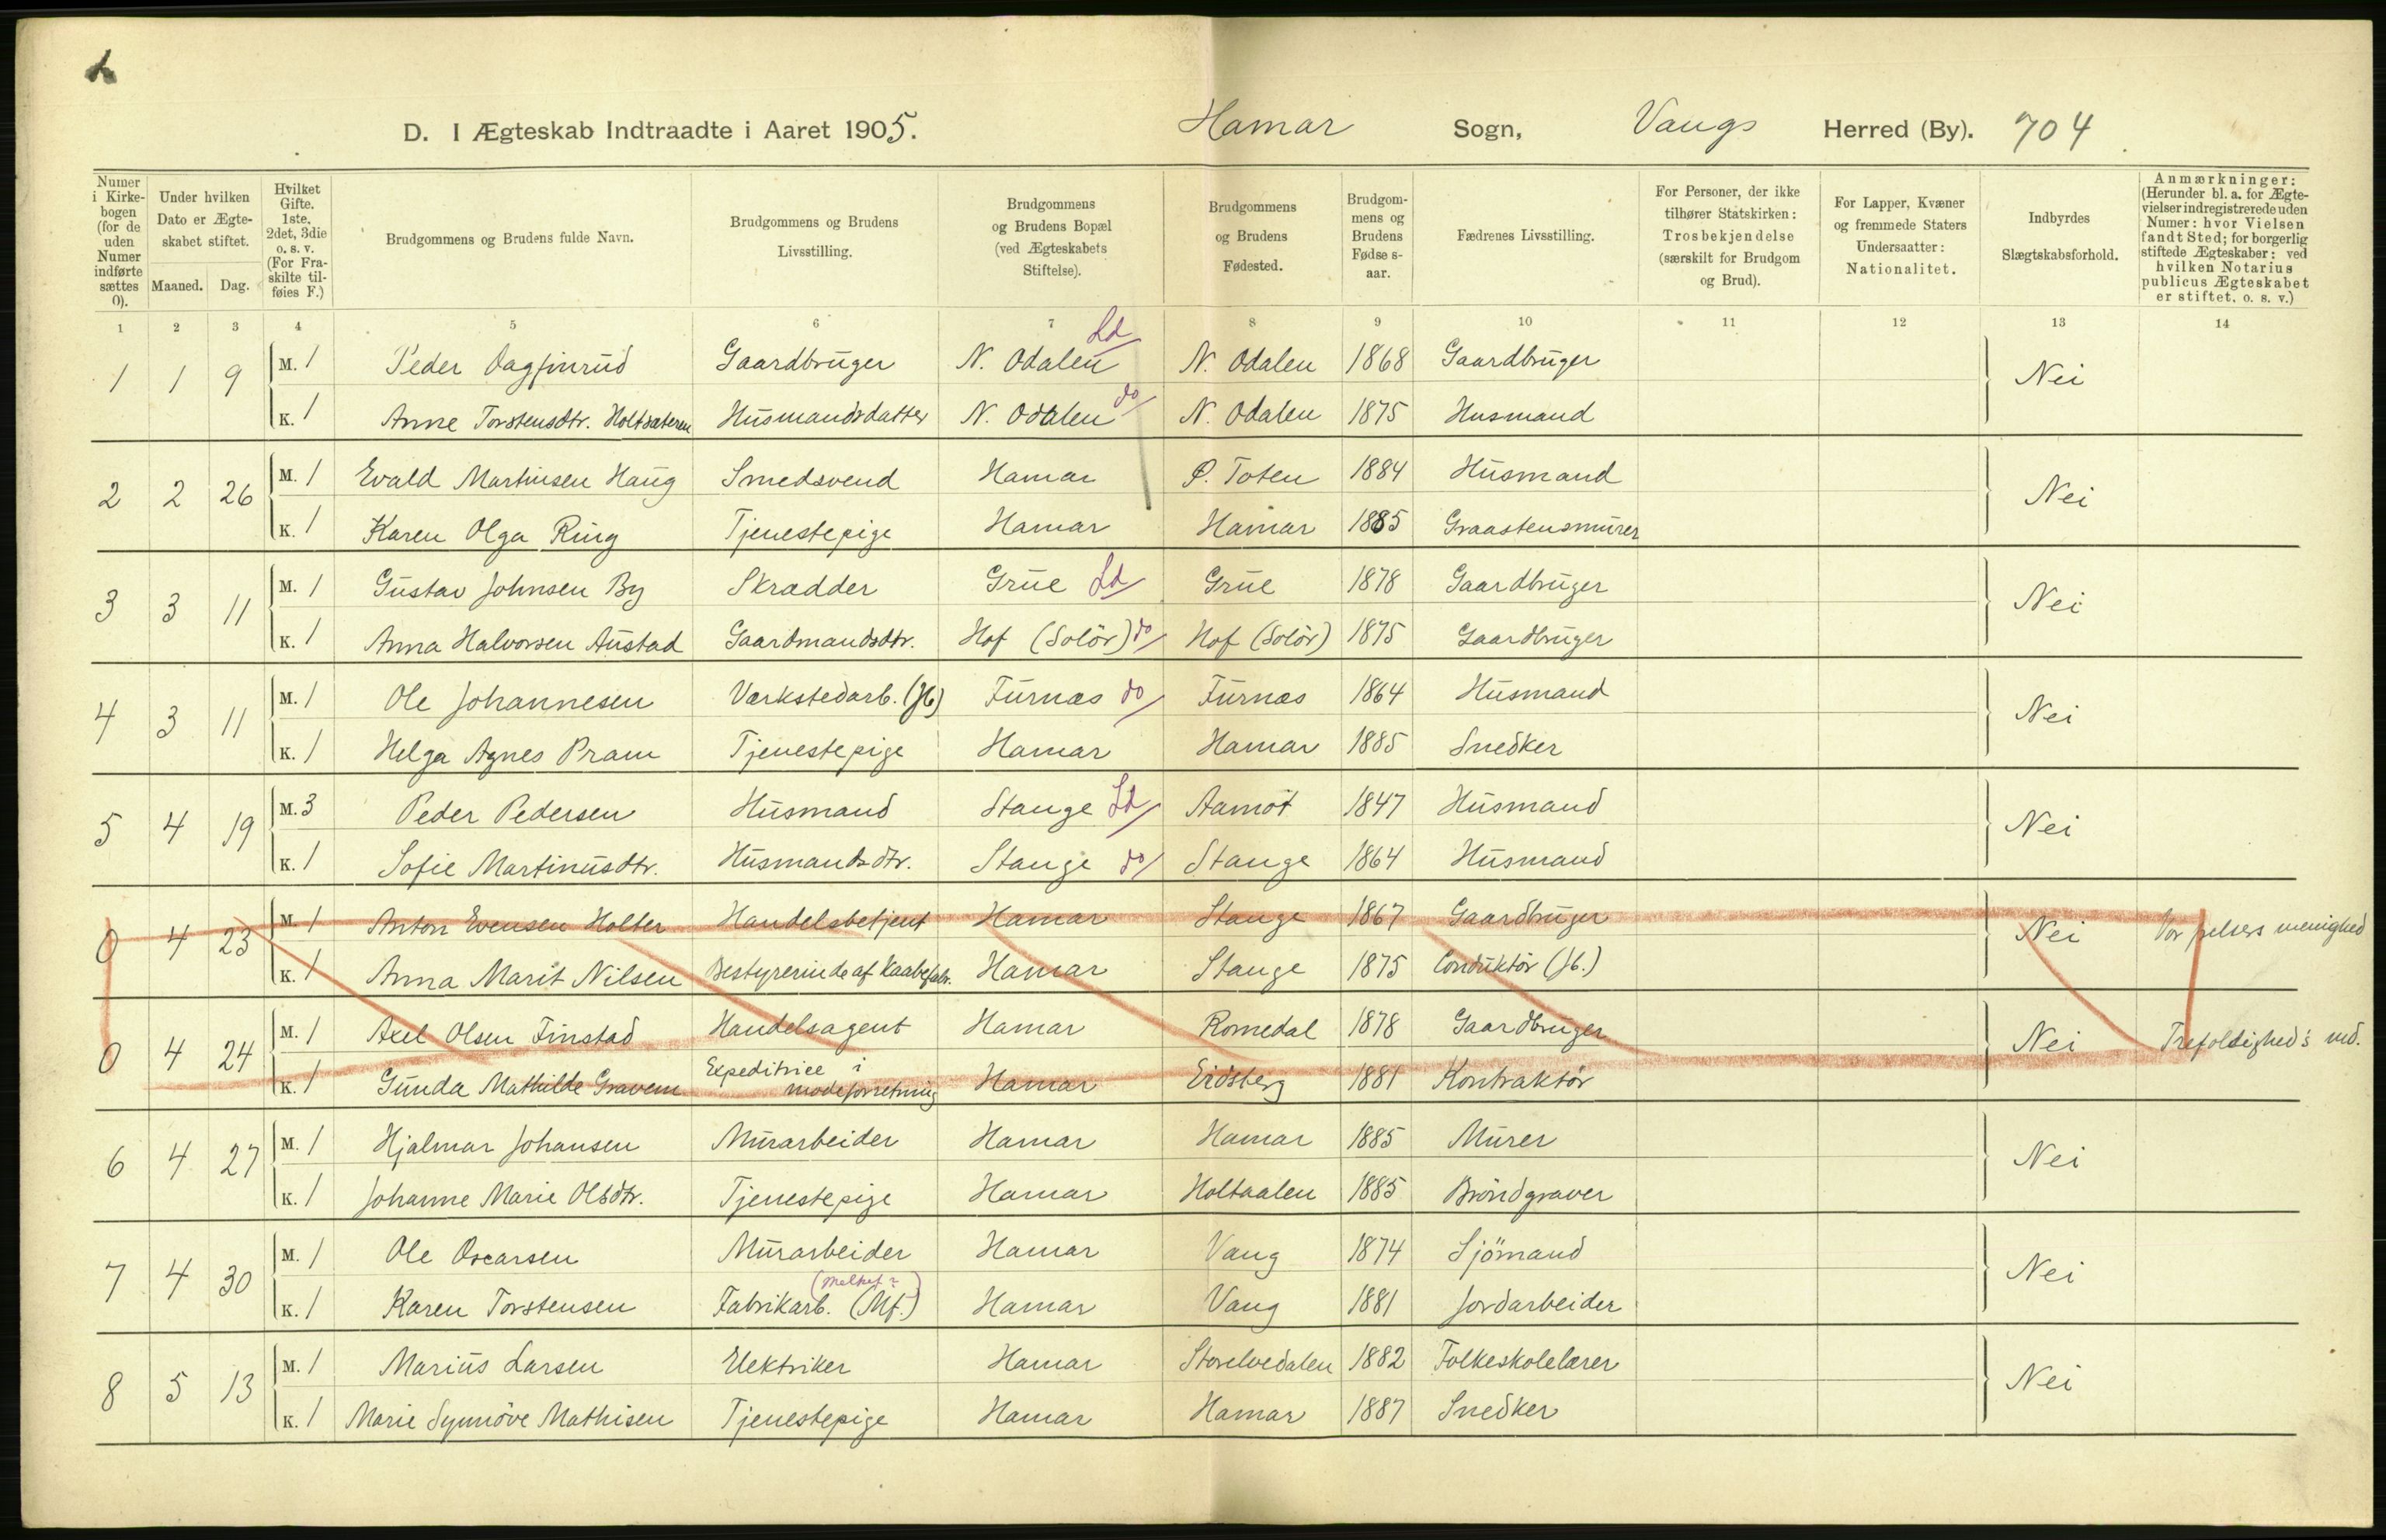 D. I Ægteskab Indtraadte i Aaret 1905. Hamar Sogn, Vangs Herred (By). 704
Numer i Kirkebogen (for de uden Numer indførte sættes 0).
Under hvilken Dato er Ægteskabet stiftet.
Maaned. Dag.
Hvilket Gifte. 1ste, 2det, 3die o. s. v. (For Fraskilte tilføies F.)
Brudgommens og Brudens fulde Navn.
Brudgommens og Brudens Livsstilling.
Brudgommens og Brudens Bopæl (ved Ægteskabets Stiftelse).
Brudgommens og Brudens Fødested.
Brudgommens og Brudens Fødselsaar.
Fædrenes Livsstilling.
For Personer, der ikke tilhører Statskirken: Trosbekjendelse (særskilt for Brudgom og Brud).
For Lapper, Kvæner og fremmede Staters Undersaatter: Nationalitet.
Indbyrdes Slægtskabsforhold.
Anmærkninger: (Herunder bl. a. for Ægtevielser indregistrerede uden Numer: hvor Vielsen fandt Sted; for borgerlig stiftede Ægteskaber: ved hvilken Notarius publicus Ægteskabet er stiftet, o. s. v.)
1 2 3 4 5 6 7 8 9 10 11 12 13 14
1 1 9 M. 1 Peder Dagfinrud Gaardbruger N. Odalen Ld N. Odalen 1868 Gaardbruger Nei
K. 1 Anne Torstensdtr. Holtsæteren Husmandsdatter N. Odalen do N. Odalen 1875 Husmand
2 2 26 M. 1 Evald Martinsen Haug Smedsvend Hamar Ø. Toten 1884 Husmand Nei
K. 1 Karen Olga Ring Tjenestepige Hamar Hamar 1885 Graastensmurer
3 3 11 M. 1 Gustav Johnsen By Skrædder Grue Ld Grue 1878 Gaardbruger Nei
K. 1 Anna Halvorsen Austad Gaardmandsdtr. Hof (Solör) do Hof (Solör) 1875 Gaardbruger
4 3 11 M. 1 Ole Johannesen Værkstedarb. (Jb) Furnæs do Furnæs 1864 Husmand Nei
K. 1 Helga Agnes Pram Tjenestepige Hamar Hamar 1885 Snedker
5 4 19 M. 3 Peder Pedersen Husmand Stange Ld Aamöt 1847 Husmand Nei
K. 1 Sofie Martinusdtr. Husmandsdtr. Stange do Stange 1864 Husmand
0 4 23 M. 1 Anton Evensen Holter Handelsbetjent Hamar Stange 1867 Gaardbruger Nei Vor frelsers menighed
K. 1 Anna Marit Nilsen Bestyrerinde af Kaabefabr. Hamar Stange 1875 Conduktör (Jb.)
0 4 24 M. 1 Axel Olsen Finstad Handelsagent Hamar Romedal 1878 Gaardbruger Nei Trefoldighed's md.
K. 1 Gunda Mathilde Gravem Expeditrice i modeforretning Hamar Eidsberg 1881 Kontraktör
6 4 27 M. 1 Hjalmar Johansen Murarbeider Hamar Hamar 1885 Murer Nei
K. 1 Johanne Marie Olsdtr. Tjenestepige Hamar Holtaalen 1885 Bröndgraver
7 4 30 M. 1 Ole Oscarsen Murarbeider Hamar Vang 1874 Sjömand Nei
K. 1 Karen Torstensen Fabrikarb. (Mf.) Hamar Vang 1881 Jordarbeider
8 5 13 M. 1 Marius Larsen Elektriker Hamar Storelvedalen 1882 Folkeskolelærer Nei
K. 1 Marie Synnöve Mathisen Tjenestepige Hamar Hamar 1887 Snedker